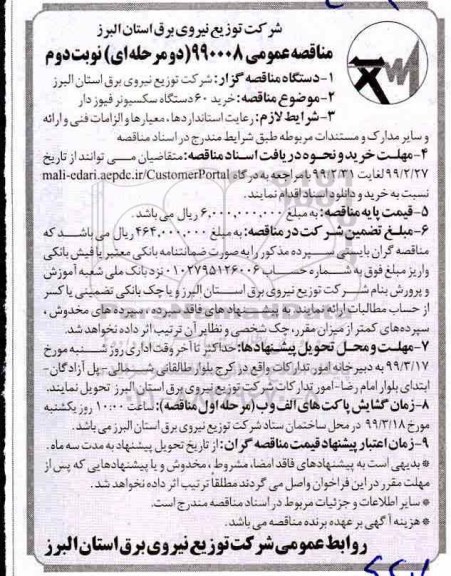 شرکت توزیع نیروی برق استان البرز
مناقصه عمومی ۹۹۰۰۰۸ (دو مرحله ای) نوبت دوم
۱-دستگاه مناقصه گزار: شرکت توزیع نیروی برق استان البرز
۲-موضوع مناقصه: خرید ۶۰ دستگاه سکسیونر فیوز دار
۳-شرایط لازم: رعایت استانداردها، معیارها و الزامات فنی و ارائه
و سایر مدارک و مستندات مربوطه طبق شرایط مندرج در اسناد مناقصه
۴-مهلت خرید و نحوه دریافت اسناد مناقصه: متقاضیان می توانند از تاریخ
۹۹/۲/۲۷ لغایت ۹۹/۲/۳۱ با مراجعه به درگاه mali-edari.aepdc.ir/CustomerPortal
نسبت به خرید و دانلود اسناد اقدام نمایند.
۵-قیمت پایه مناقصه: به مبلغ ۶,۰۰۰,۰۰۰,۰۰۰ ریال می باشد.
۶-مبلغ تضمین شرکت در مناقصه: به مبلغ ۴۶۴,۰۰۰,۰۰۰ ریال می باشد که
مناقصه گران بایستی سپرده مذکور را به صورت ضمانتنامه بانکی معتبر یا فیش بانکی
واریز مبلغ فوق به شماره حساب ۰۱۰۲۷۹۵۱۲۶۰۰۶ نزد بانک ملی شعبه آموزش
و پرورش بنام شرکت توزیع نیروی برق استان البرز و یا چک بانکی تضمینی یا کسر
از حساب مطالبات ارائه نمایند. به پیشنهادهای فاقد سپرده، سپرده های مخدوش،
سپرده‌های کمتر از میزان مقرر، چک شخصی و نظایر آن ترتیب اثر داده نخواهد شد.
۷-مهلت و محل تحویل پیشنهادها: حداکثر تا آخر وقت اداری روز شنبه مورخ
۹۹/۳/۱۷ به دبیرخانه امور تدارکات واقع در کرج بلوار طالقانی شمالی-پل آزادگان-
ابتدای بلوار امام رضا-امور تدارکات شرکت توزیع نیروی برق استان البرز تحویل نمایند.
۸-زمان گشایش پاکت های الف و ب (مرحله اول مناقصه): ساعت ۱۰:۰۰ روز یکشنبه
مورخ ۹۹/۳/۱۸ در محل ساختمان ستاد شرکت توزیع نیروی برق استان البرز می باشد.
۹-زمان اعتبار پیشنهاد قیمت مناقصه گران: از تاریخ تحویل پیشنهاد به مدت سه ماه.
* بدیهی است به پیشنهادهای فاقد امضا، مشروط، مخدوش و یا پیشنهادهایی که پس از
مهلت مقرر در این فراخوان واصل می گردند مطلقا ترتیب اثر داده نخواهد شد.
* سایر اطلاعات و جزئیات مربوط در اسناد مناقصه مندرج است.
* هزینه آگهی بر عهده برنده مناقصه می باشد.
روابط عمومی شرکت توزیع نیروی برق استان البرز